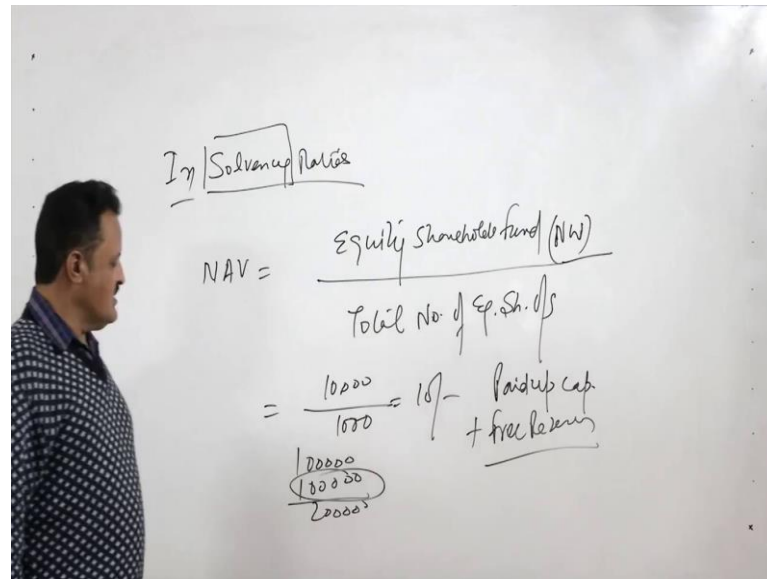 In Solvency Ratios
NAV = Equity Shareholders fund (NW)
Total No. of Eq. Sh. o/s
= 10000 / 1000 = 10/-
Paid up cap.
+ free Reserves
100000
100000
200000